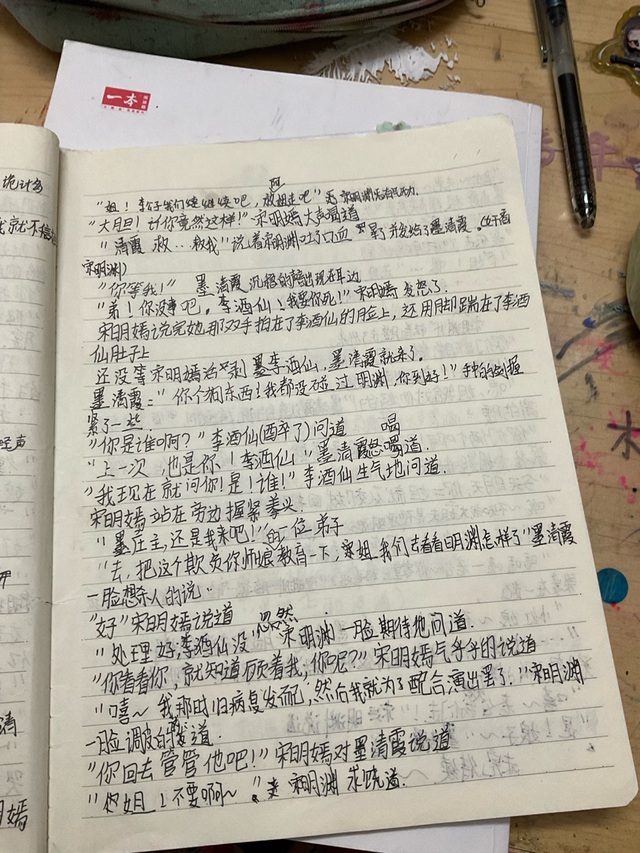 一本
诡计多
就不信
阿
"姐！李公子我们
放姐走吧"宋明渊无力
"大月旦！讨你竟然这样！"宋明嫣大声喝道
"清霞 救‥救我"说着宋明渊吐了口血 晕了
墨清霞。
宋明渊）
"你等我！" 墨清霞沉稳的 出现在耳边
"弟！你没事吧。李酒仙！我要你死！"宋明嫣发怒了
宋明嫣说完她那双手拍在了李酒仙的脸上，还用脚踹在了李酒
仙肚子上
还没等宋明嫣 李酒仙，墨清霞就来了。
墨清霞："你个狗东西！我都没碰过明渊，你到好！"手中的剑握
紧了一些
"你是谁啊？"李酒仙(醉了)问道
喝
"上一次，也是你！李酒仙"墨清霞怒喝道.
"我现在就问你！是！谁！"李酒仙生气地问道.
宋明嫣站在旁边握紧拳头
"墨庄主，还是我来吧！"的一位弟子
"去，把这个欺负你师娘教育一下，宋姐我们去看看明渊怎样了"墨清霞
一脸想杀人的说.
"好"宋明嫣说道 忽然
"处理好李酒仙没，宋明渊一脸期待地问道.
"你看看你 就知道顾着我，你呢？"宋明嫣气乎乎的说道
"嘻～我那时旧病复发而已，然后我就为了配合，演出罢了."宋明渊
一脸调皮的 道.
"你回去管管他吧！"宋明嫣对墨清霞说道
姐！不要啊～"宋明渊求饶道.
清
明嫣